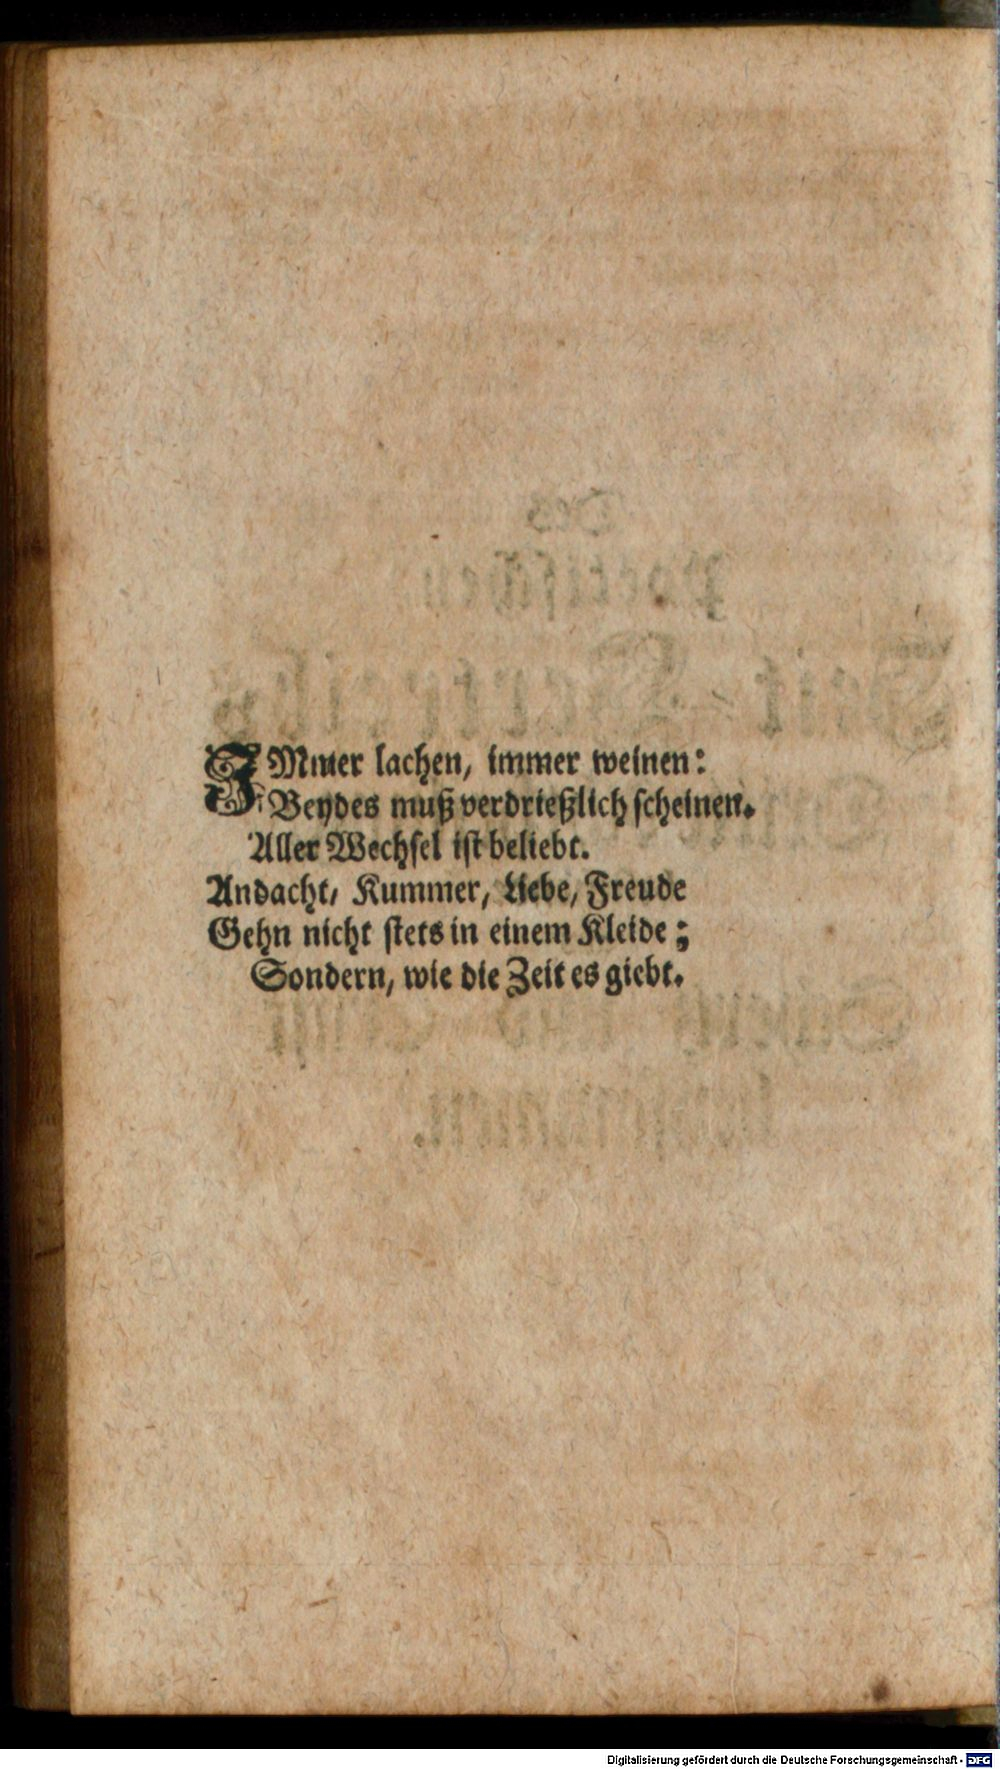 IMmer lachen, immer weinen:
Beydes muß verdrießlich scheinen.
Aller Wechsel ist beliebt.
Andacht, Kummer, Liebe, Freude
Gehn nicht stets in einem Kleide;
Sondern, wie die Zeit es giebt.
Digitalisierung gefördert durch die Deutsche Forschungsgemeinschaft - DFG